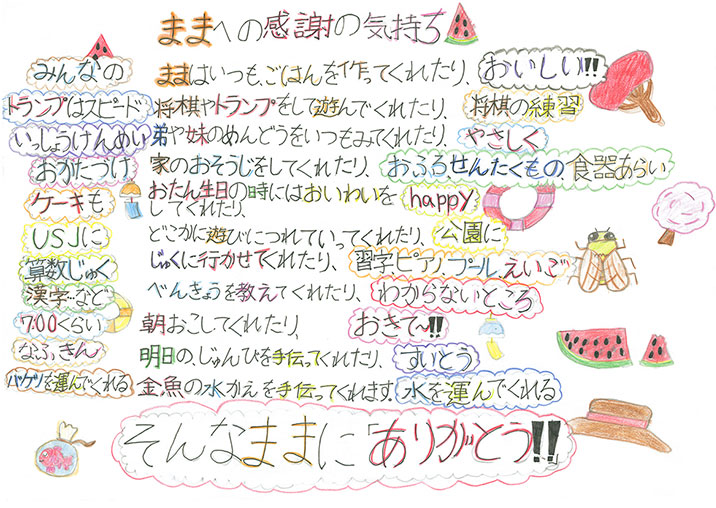 ままへの感謝の気持ち
みんなの ままはいつも、ごはんを作ってくれたり、 おいしい!!
トランプはスピード 将棋やトランプをして遊んでくれたり、 将棋の練習
いっしょうけんめい 弟や妹のめんどうをいつもみてくれたり、 やさしく
おかたづけ 家のおそうじをしてくれたり、 おふろ、せんたくもの、食器あらい
ケーキも おたん生日の時にはおいわいをしてくれたり、 happy
USJに どこかに遊びにつれていってくれたり、 公園に
算数じゅく じゅくに行かせてくれたり、 習字ピアノ、プール、えいご
漢字など べんきょうを教えてくれたり、 わからないところ
7:00くらい 朝おこしてくれたり、 おきて〜!!
なふ。きん 明日の、じゅんびを手伝ってくれたり、 すいとう
バケツを運んでくれる 金魚の水かえを手伝ってくれます。 水を運んでくれる
そんなままに「ありがとう!!」